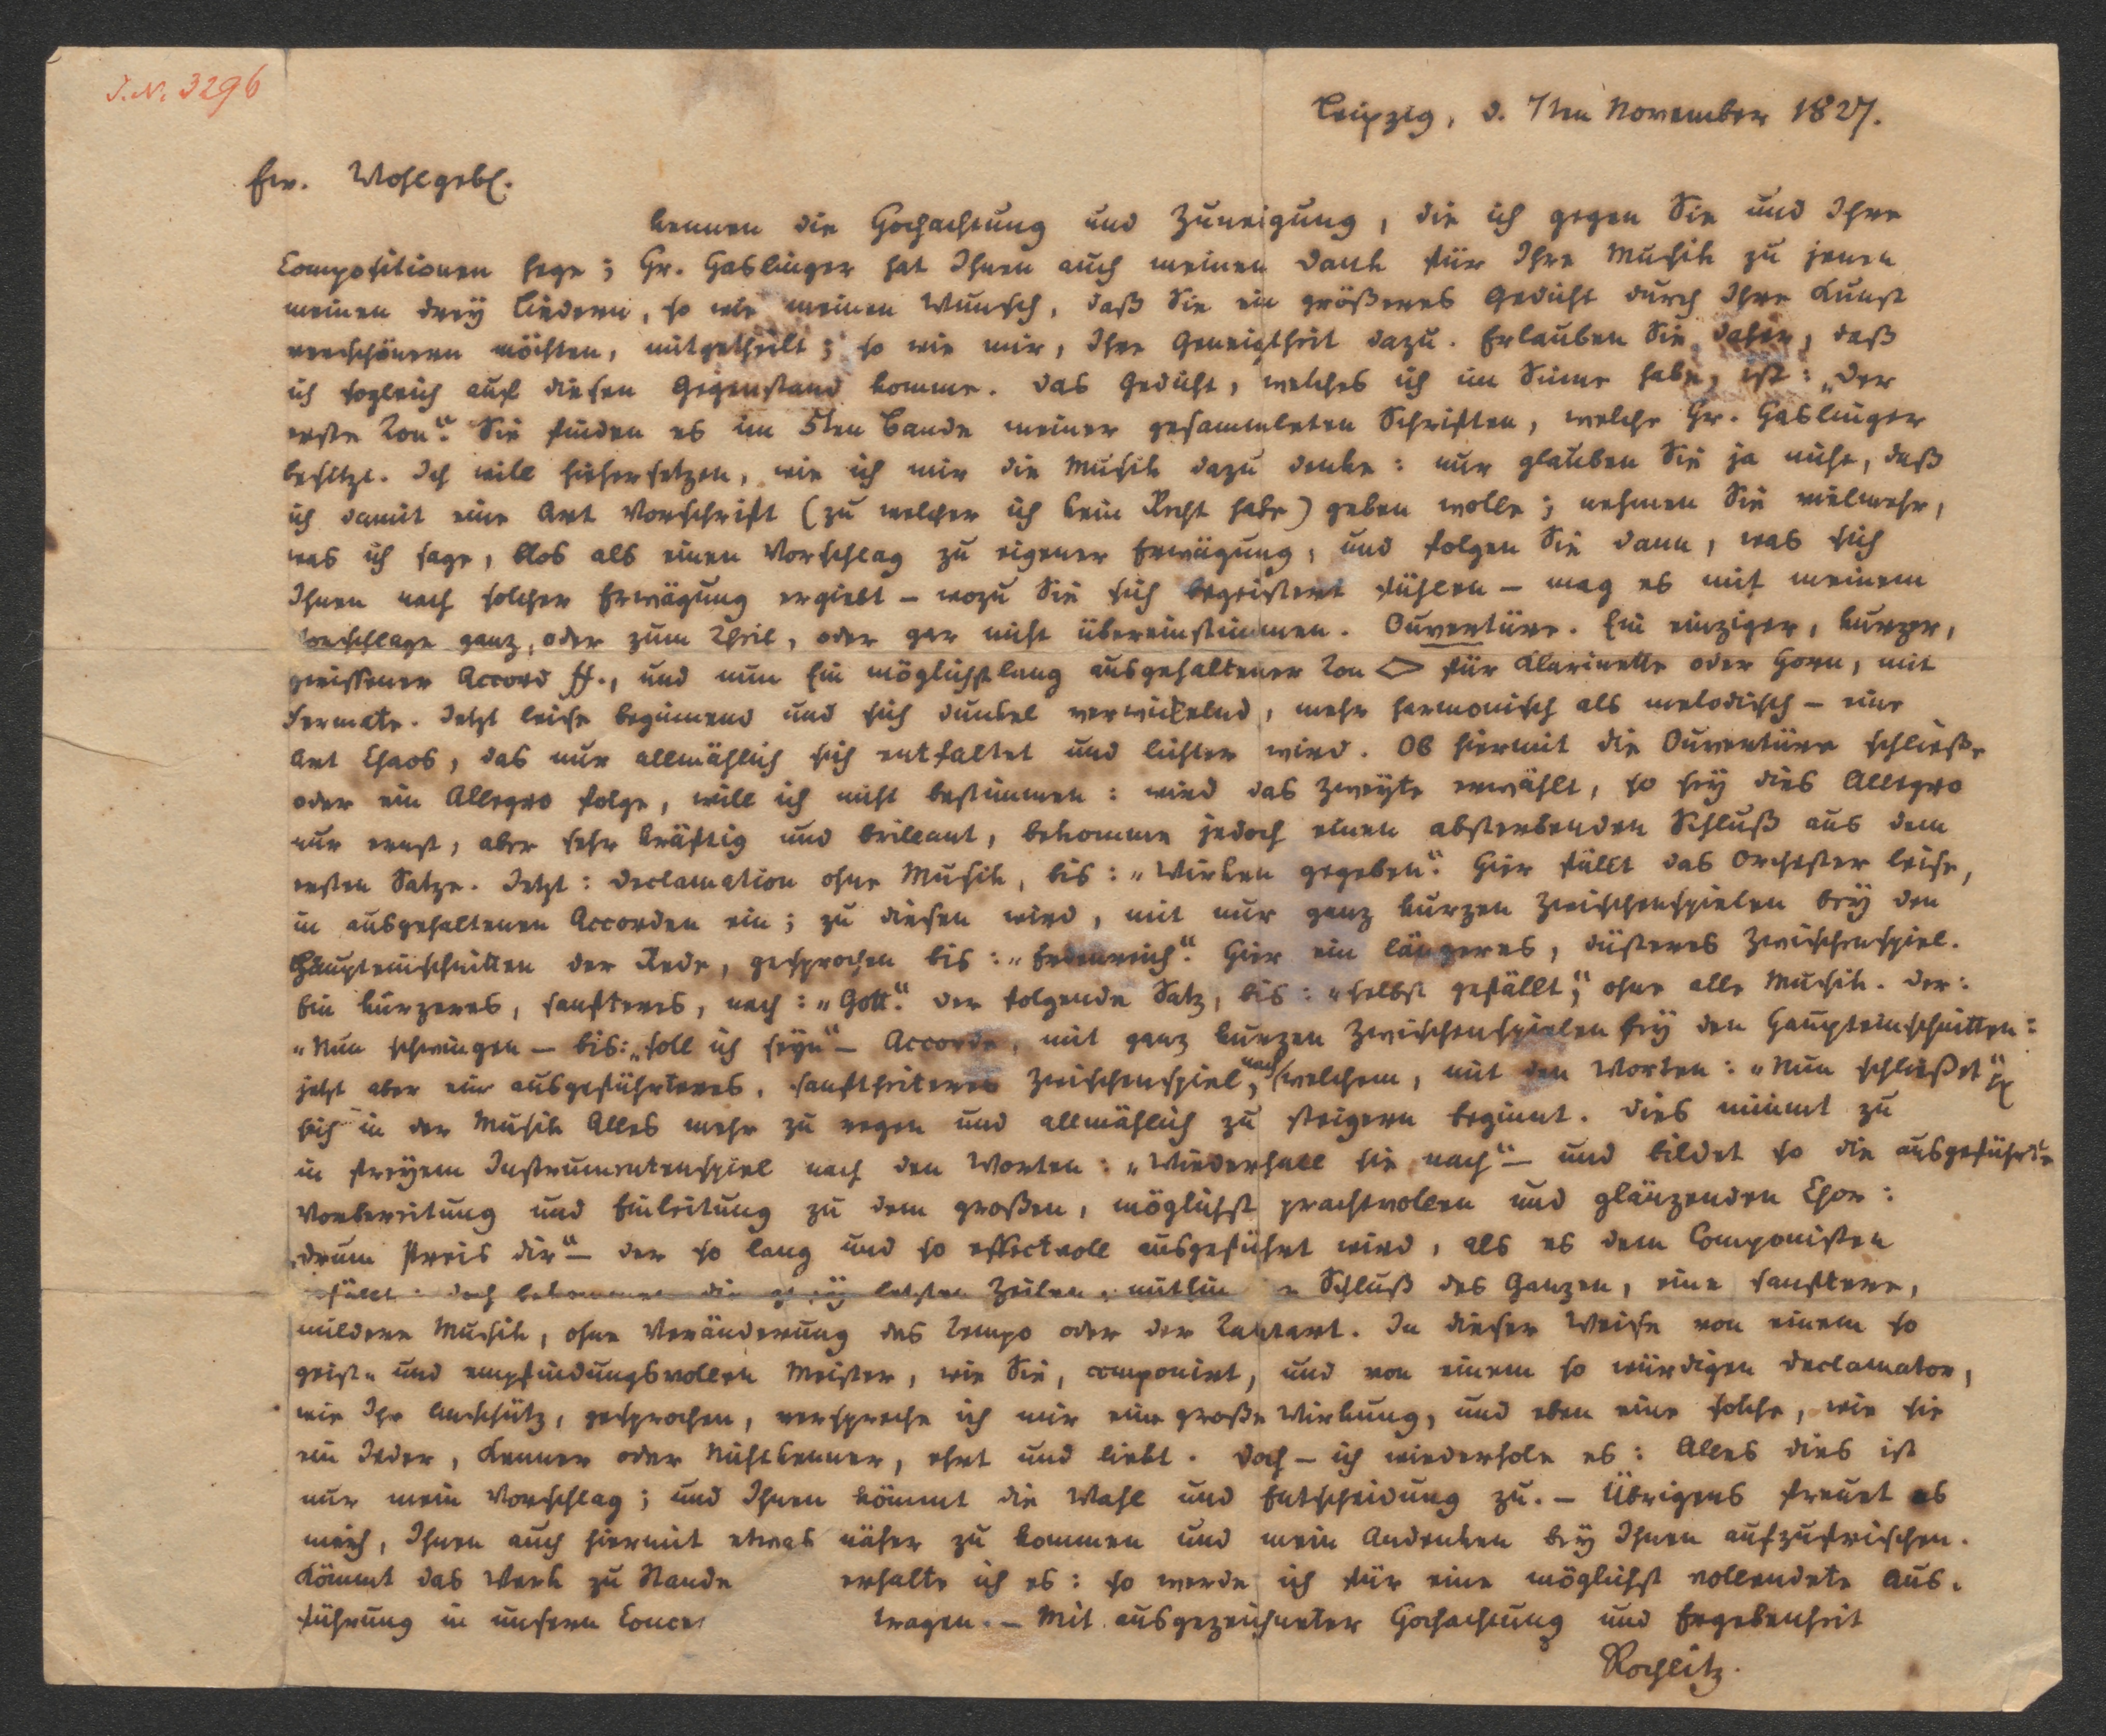 J. N. 3296
Leipzig, d. 7ten November 1827.
Ew. Wohlgebl.
kennen die Hochachtung und Zuneigung, die ich gegen Sie und Ihre
Compositionen hege; Hr. Haslinger hat Ihnen auch meinen Dank für Ihre Musik zu jenen
meinen drey Liedern, so wie meinen Wunsch, daß Sie ein größeres Gedicht durch Ihre Kunst
verschönern möchten, mitgetheilt; so wie mir, Ihre Geneigtheit dazu. Erlauben Sie daher, daß
ich sogleich auf diesen Gegenstand komme. Das Gedicht, welches ich im Sinne habe, ist: „Der
erste Ton“. Sie finden es im 5ten Bande meiner gesammleten Schriften, welche Hr. Haslinger
besitzt. Ich will hiehersetzen, wie ich mir die Musik dazu denke: nur glauben Sie ja nicht, daß
ich damit eine Art Vorschrift (zu welcher ich kein Recht habe) geben wolle; nehmen Sie vielmehr,
was ich sage, blos als einen Vorschlag zu eigener Erwägung, und folgen Sie dann, was sich
Ihnen nach solcher Erwägung ergiebt – wozu Sie sich begeistert fühlen – mag es mit meinem
Vorschlage ganz, oder zum Theil, oder gar nicht übereinstimmen. Ouvertüre. Ein einziger, kurzer,
gerissener Accord ff., und nun Ein möglichst lang ausgehaltener Ton <> für Klarinette oder Horn, mit
Fermate. Jetzt leise beginnend und sich dunkel verwickelnd, mehr harmonisch als melodisch – eine
Art Chaos, das nur allmählich sich entfaltet und lichter wird. Ob hiermit die Ouvertüre schließe
oder ein Allegro folge, will ich nicht bestimmen: wird das Zweyte erwählt, so sey dies Allegro
nur ernst, aber sehr kräftig und brillant, bekomme jedoch einen absterbenden Schluß aus dem
ersten Satze. Jetzt: Declamation ohne Musik, bis: „Wirken gegeben“. Hier fällt das Orchester leise,
in ausgehaltenen Accorden ein; zu diesen wird, mit nur ganz kurzen Zwischenspielen bey den
Haupteinschnitten der Rede, gesprochen bis: „Erdenreich“. Hier ein längeres, düsteres Zwischenspiel.
Ein kürzeres, sanfteres, nach: „Gott“. Der folgende Satz, bis: „selbst gefällt“, ohne alle Musik. Der:
„Nun schwingen – bis: „soll ich seyn“ – Accorde, mit ganz kurzen Zwischenspielen bey den Haupteinschnitten:
jetzt aber ein ausgeführteres, sanftheiteres Zwischenspiel, nach welchem, mit den Worten: „Nun schließet“
sich in der Musik Alles mehr zu regen und allmählich zu steigern beginnt. Dies nimmt zu
in freyem Instrumentenspiel nach den Worten: „Wiederhall sie nach“ – und bildet so die ausgeführte
Vorbereitung und Einleitung zu dem großen, möglichst prachtvollen und glänzenden Chor:
„Drum Preis dir“ – der so lang und so effectvoll ausgeführt wird, als es dem Componisten
gefällt: doch bekommen die zwey letzten Zeilen, mithin Schluß des Ganzen, eine sanftere,
mildere Musik, ohne Veränderung des Tempo oder der Tactart. In dieser Weise von einem so
geist- und empfindungsvollen Meister, wie Sie, componirt, und von einem so würdigen Declamator,
wie Ihr Anschütz, gesprochen, verspreche ich mir eine große Wirkung, und eben eine solche, wie sie
ein Jeder, Kenner oder Nichtkenner, ehrt und liebt. Doch – ich wiederhole es: Alles dies ist
nur mein Vorschlag; und Ihnen kömmt die Wahl und Entscheidung zu. – Übrigens freuet es
mich, Ihnen auch hiermit etwas näher zu kommen und mein Andenken bey Ihnen aufzufrischen.
Kömmt das Werk zu Stande erhalte ich es: so werde ich für eine möglichst vollendete Aus-
führung in unserm Concer tragen. – Mit ausgezeichneter Hochachtung und Ergebenheit
Rochlitz.